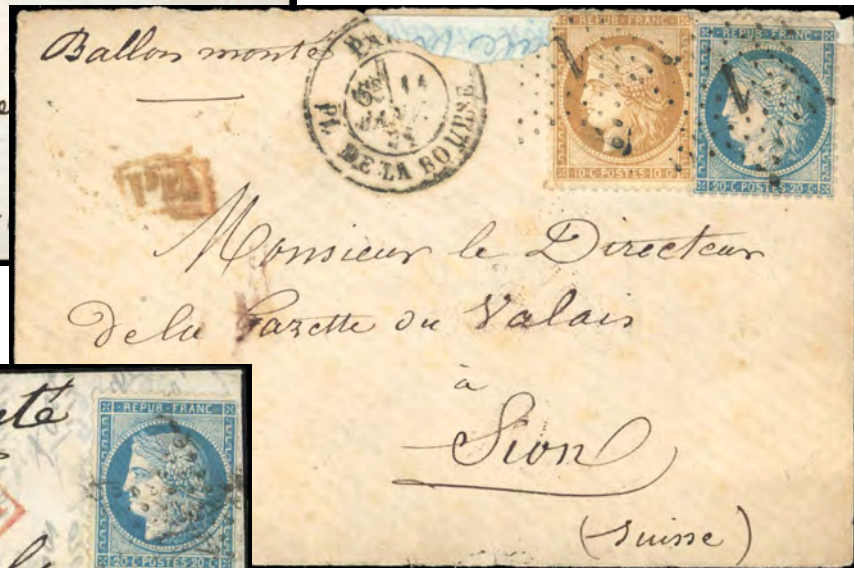 Ballon monté
PL. DE LA BOURSE
REPUB·FRANC
10·C·POSTES·10·C
REPUB·FRANC
20·C·POSTES·20·C
1
1
PD
Monsieur le Directeur
de la Gazette du Valais
à
Sion
(Suisse)
REPUB·FRANC
20·C·POSTES·20·C